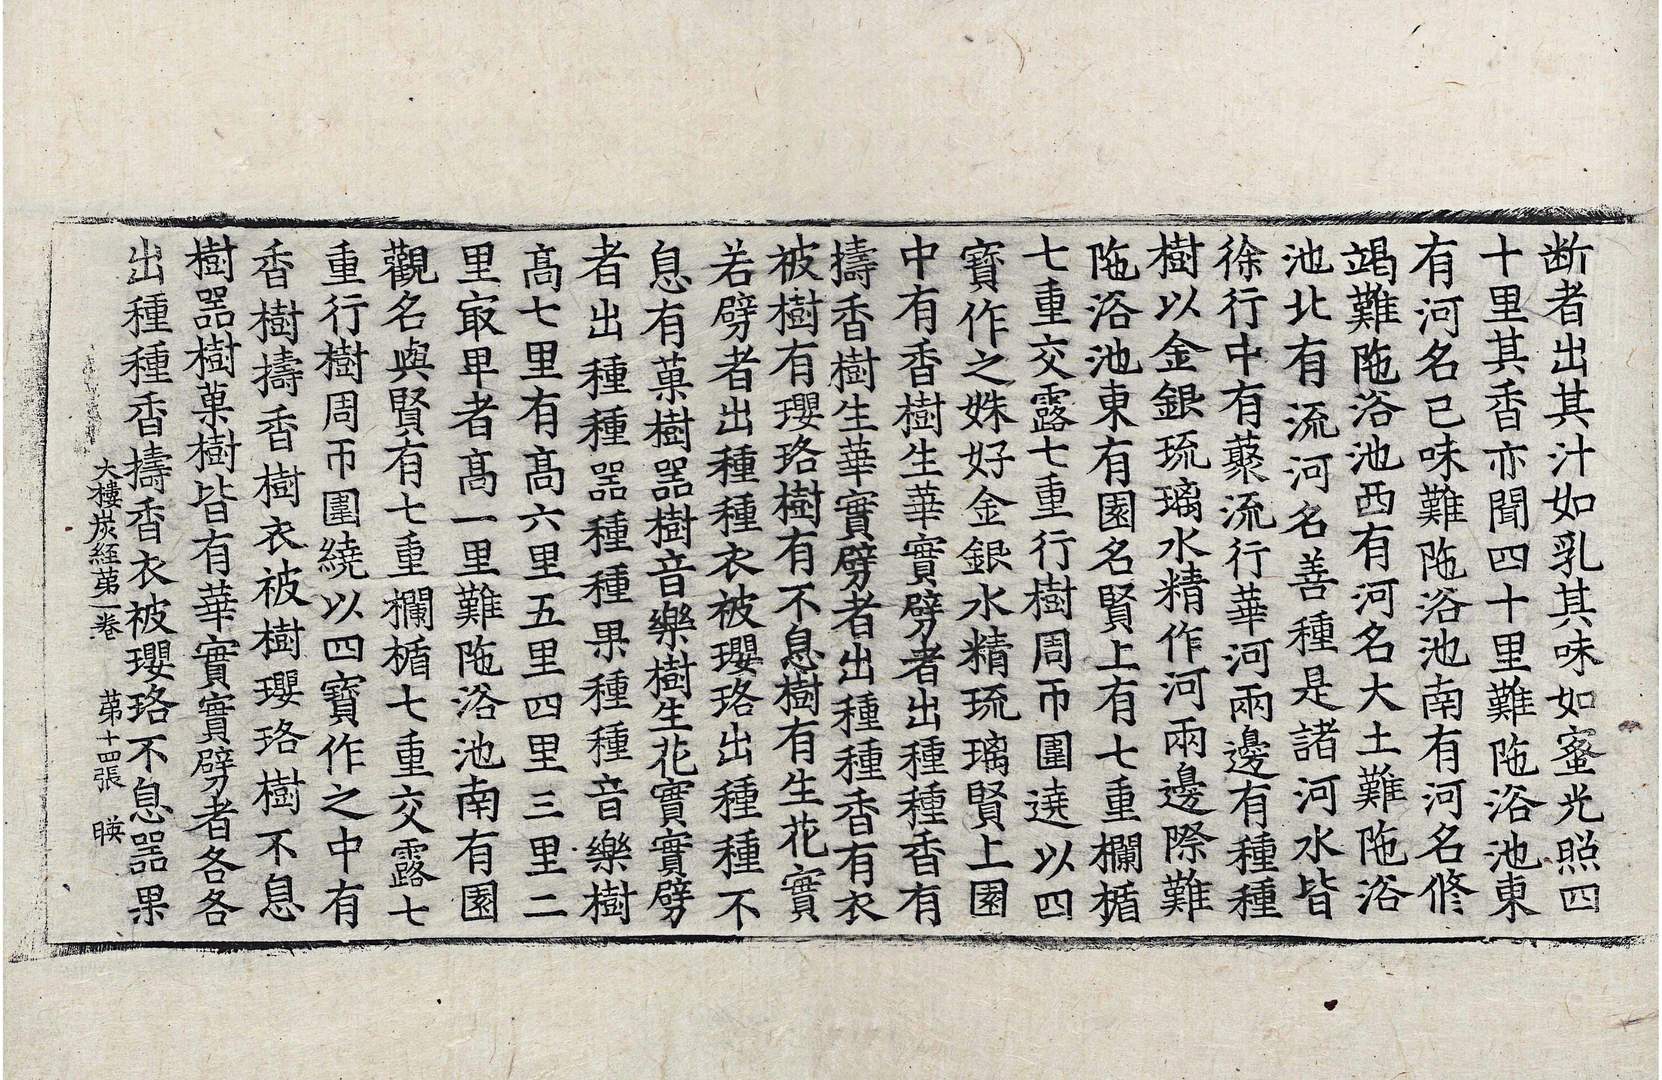 断者出其汁如乳其味如蜜光照四
十里其香亦聞四十里難陁浴池東
有河名已味難陁浴池南有河名修
竭難陁浴池西有河名大土難陁浴
池北有流河名善種是諸河水皆
徐行中有藂流行華河兩邊有種種
樹以金銀琉璃水精作河兩邊際難
陁浴池東有園名賢上有七重欄楯
七重交露七重行樹周帀圍遶以四
寶作之姝好金銀水精琉璃賢上園
中有香樹生華實劈者出種種香有
擣香樹生華實劈者出種種香有衣
被樹有瓔珞樹有不息樹有生花實
若劈者出種種衣被瓔珞出種種不
息有菓樹器樹音樂樹生花實實劈
者出種種器種種果種種音樂樹
髙七里有髙六里五里四里三里二
里㝡卑者髙一里難陁浴池南有園
觀名與賢有七重欄楯七重交露七
重行樹周帀圍繞以四寶作之中有
香樹擣香樹衣被樹瓔珞樹不息
樹器樹菓樹皆有華實實劈者各各
出種種香擣香衣被瓔珞不息器果
大樓炭経苐一卷 苐十四張 暎